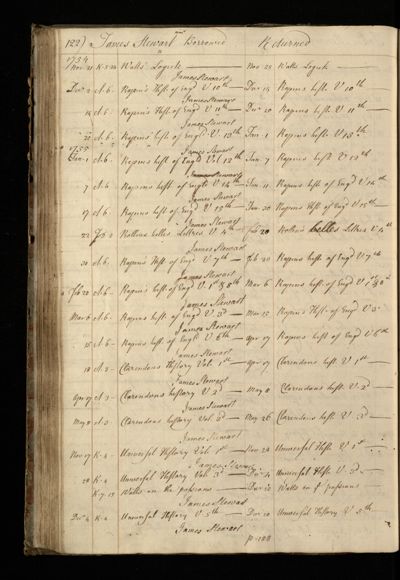 122) James Stewart Borrowed Returned
1754
Nov 21 K·5·24 Watts' Logick — Nov 23 Watts Logick —
James Stewart
Decr 2 A·6· Rapin's Hist. of Engd V 10th — Decr 14 Rapins hist. V 10th
James Stewart
14 A·6· Rapin's Hist. of Engd V 11th — Decr 20 Rapins hist. V 11th —
James Stewart
20 A·6· Rapins hist. of Engd V. 13th Jan 1 Rapins hist. V 13th
James Stewart
1755
Jan·1 A·6· Rapins hist of Engd Vol 12th Jan. 7 Rapins hist. V 12th
James Stewart
7 A·6· Rapins hist of Engld V 14th — Jan 11 Rapins hist of Engd V 14th
James Stewart
17 A·6· Rapins hist. of Engd V 15th — Jan 30 Rapins Hist of Engd V 15th —
James Stewart
22 Rollins belles Lettres V 4th — Feb 20 Rollin's belles Lettres V 4th
James Stewart
30 A·6· Rapins Hist of Engd V 7th — Feb 20 Rapins hist. of Engd V 7th
James Stewart
Feb 20 A·6· Rapin's hist. of Engd V 1st & 8th Mar 6 Rapins hist of Engd V
James Stewart
Mar 6 A·6· Rapins hist. of Engd V 3d — Mar 15 Rapins Hist. of Engd V 3d
James Stewart
15 A·6· Rapins hist. of Engd V 6th — Apr 07 Rapins hist. of Engd V 6th
James Stewart
18 A·3· Clarendons History Vol. 1st — Apr 07 Clarendons hist. V 1st —
James Stewart
Apr 07 A·3· Clarendons history V 2d — May 8 Clarendons hist. V 2d —
James Stewart
May 8 A·3· Clarendons history Vol. 3d — May 26 Clarendons hist. V. 3d —
James Stewart
Nov 07 K·4· Universal History Vol. 1st — Nov 28 Universal Hist. V 1st —
James Stewart
28 K·4· Universal History Vol. 3d — Decr 4 Universal Hist. V. 3d —
K·7·13 Watts on the passions — Decr 10 Watts on ye passions
James Stewart
Decr 4 K·4 Universal History V 5th — Decr 10 Universal History V. 5th —
James Stewart